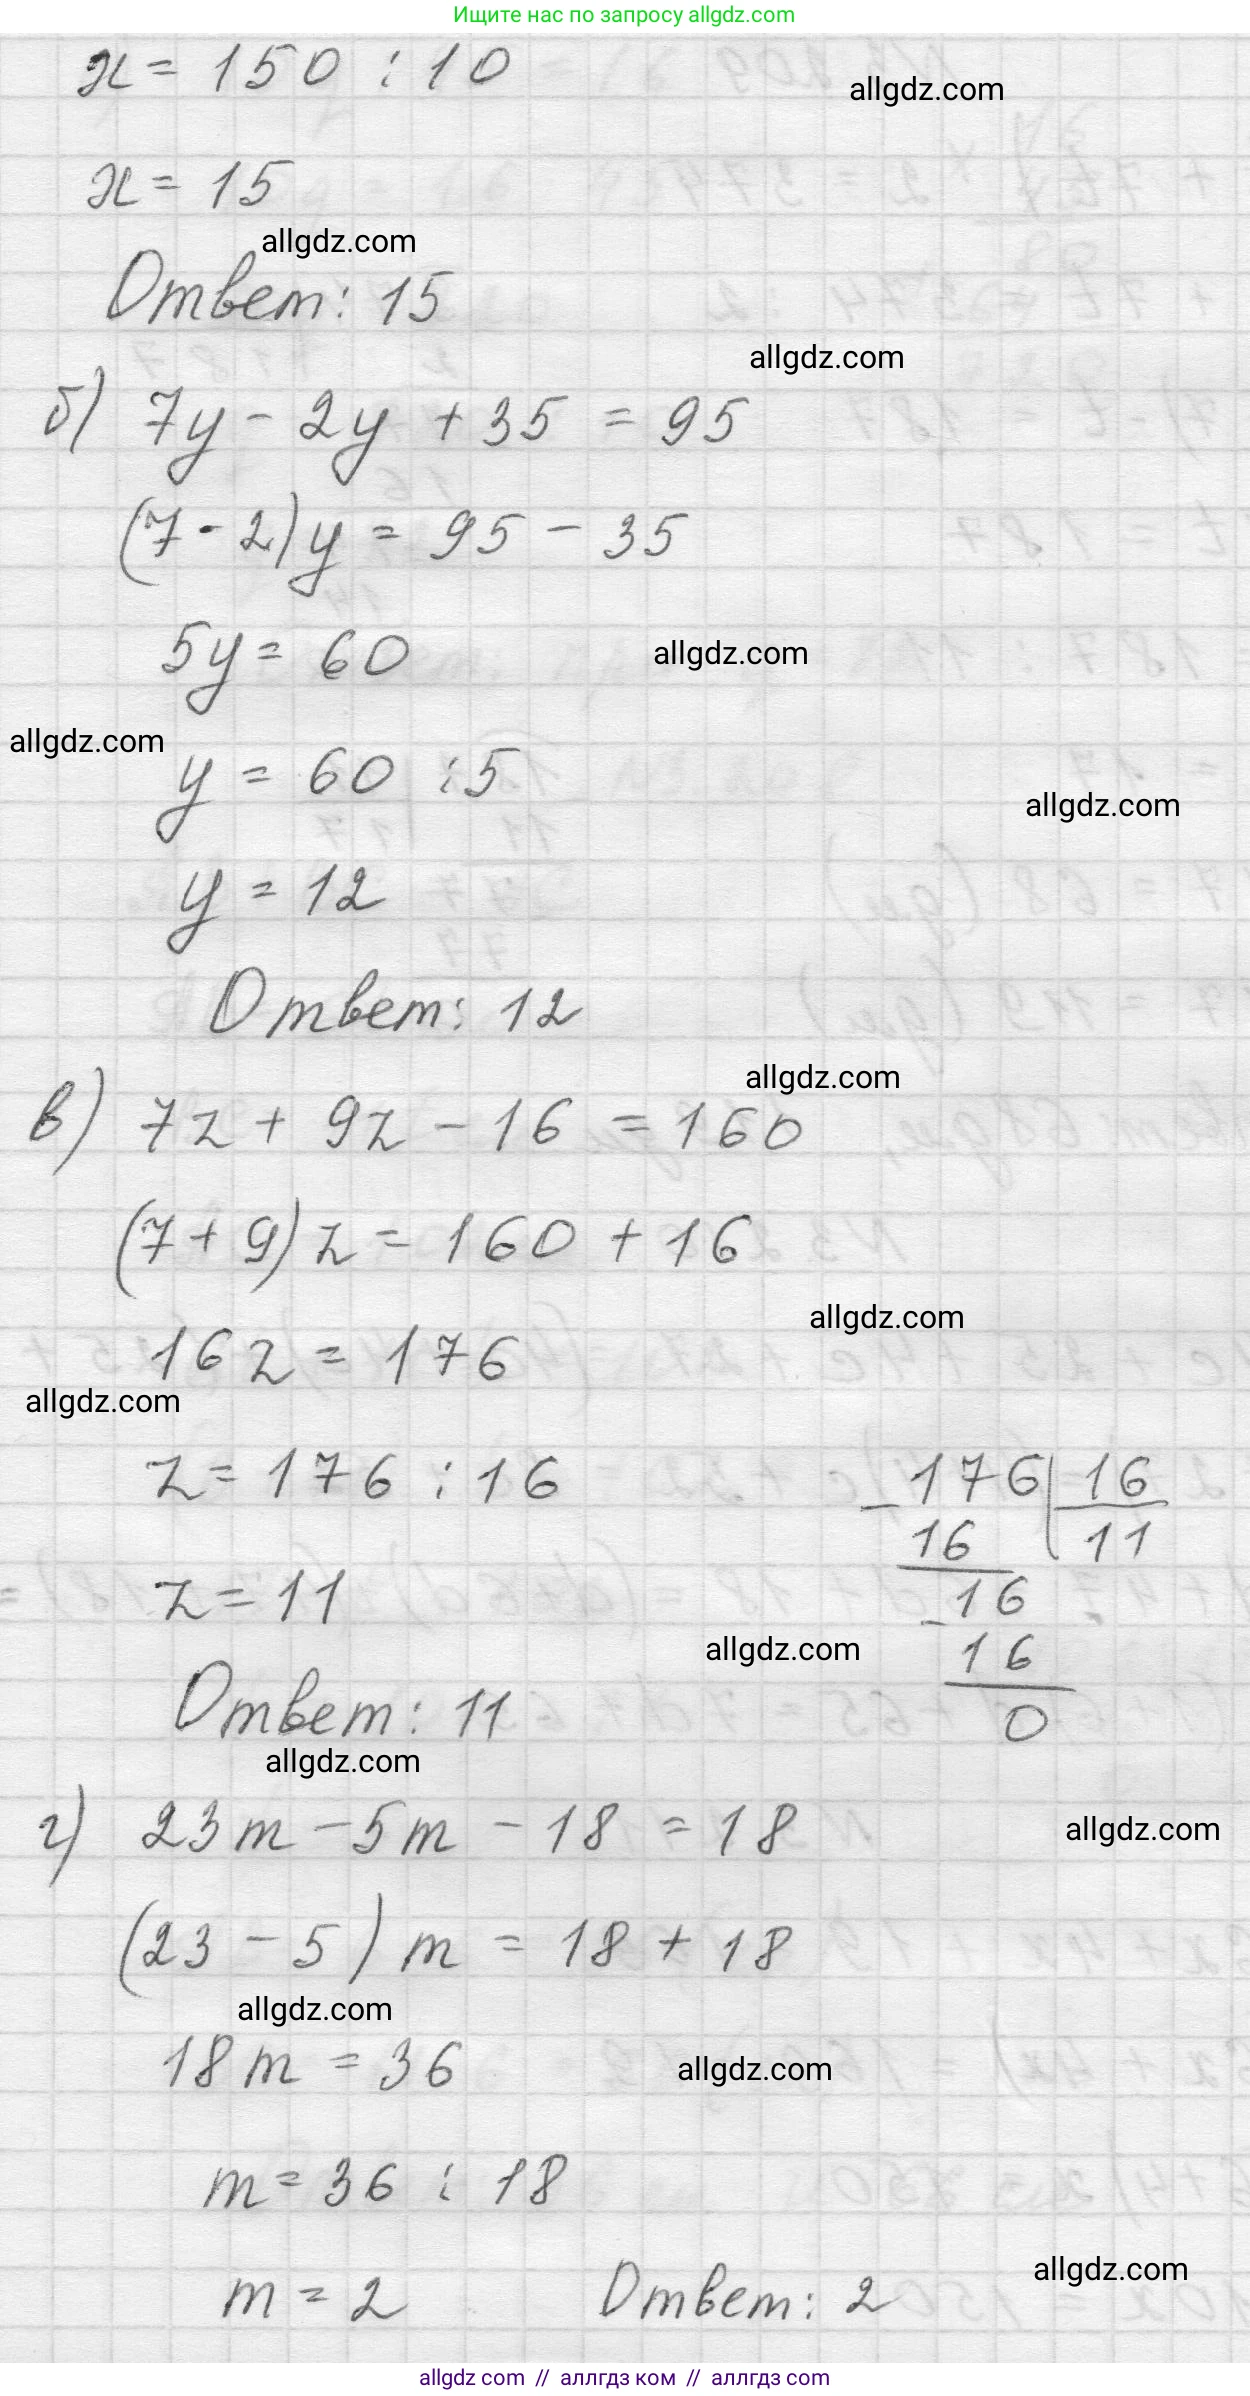 Ищите нас по запросу allgdz.com
x = 150 : 10
allgdz.com
x = 15
allgdz.com
Ответ: 15
allgdz.com
б) 7y - 2y + 35 = 95
(7 - 2)y = 95 - 35
5y = 60
allgdz.com
allgdz.com
y = 60 : 5
allgdz.com
y = 12
Ответ: 12
allgdz.com
в) 7z + 9z - 16 = 160
(7 + 9)z = 160 + 16
allgdz.com
16z = 176
allgdz.com
z = 176 : 16
z = 11
176 16
- 16 11
- 16
16
0
allgdz.com
Ответ: 11
allgdz.com
г) 23m - 5m - 18 = 18
allgdz.com
(23 - 5)m = 18 + 18
allgdz.com
18m = 36
allgdz.com
m = 36 : 18
allgdz.com
m = 2 Ответ: 2
allgdz.com // аллгдз ком // аллгдз com